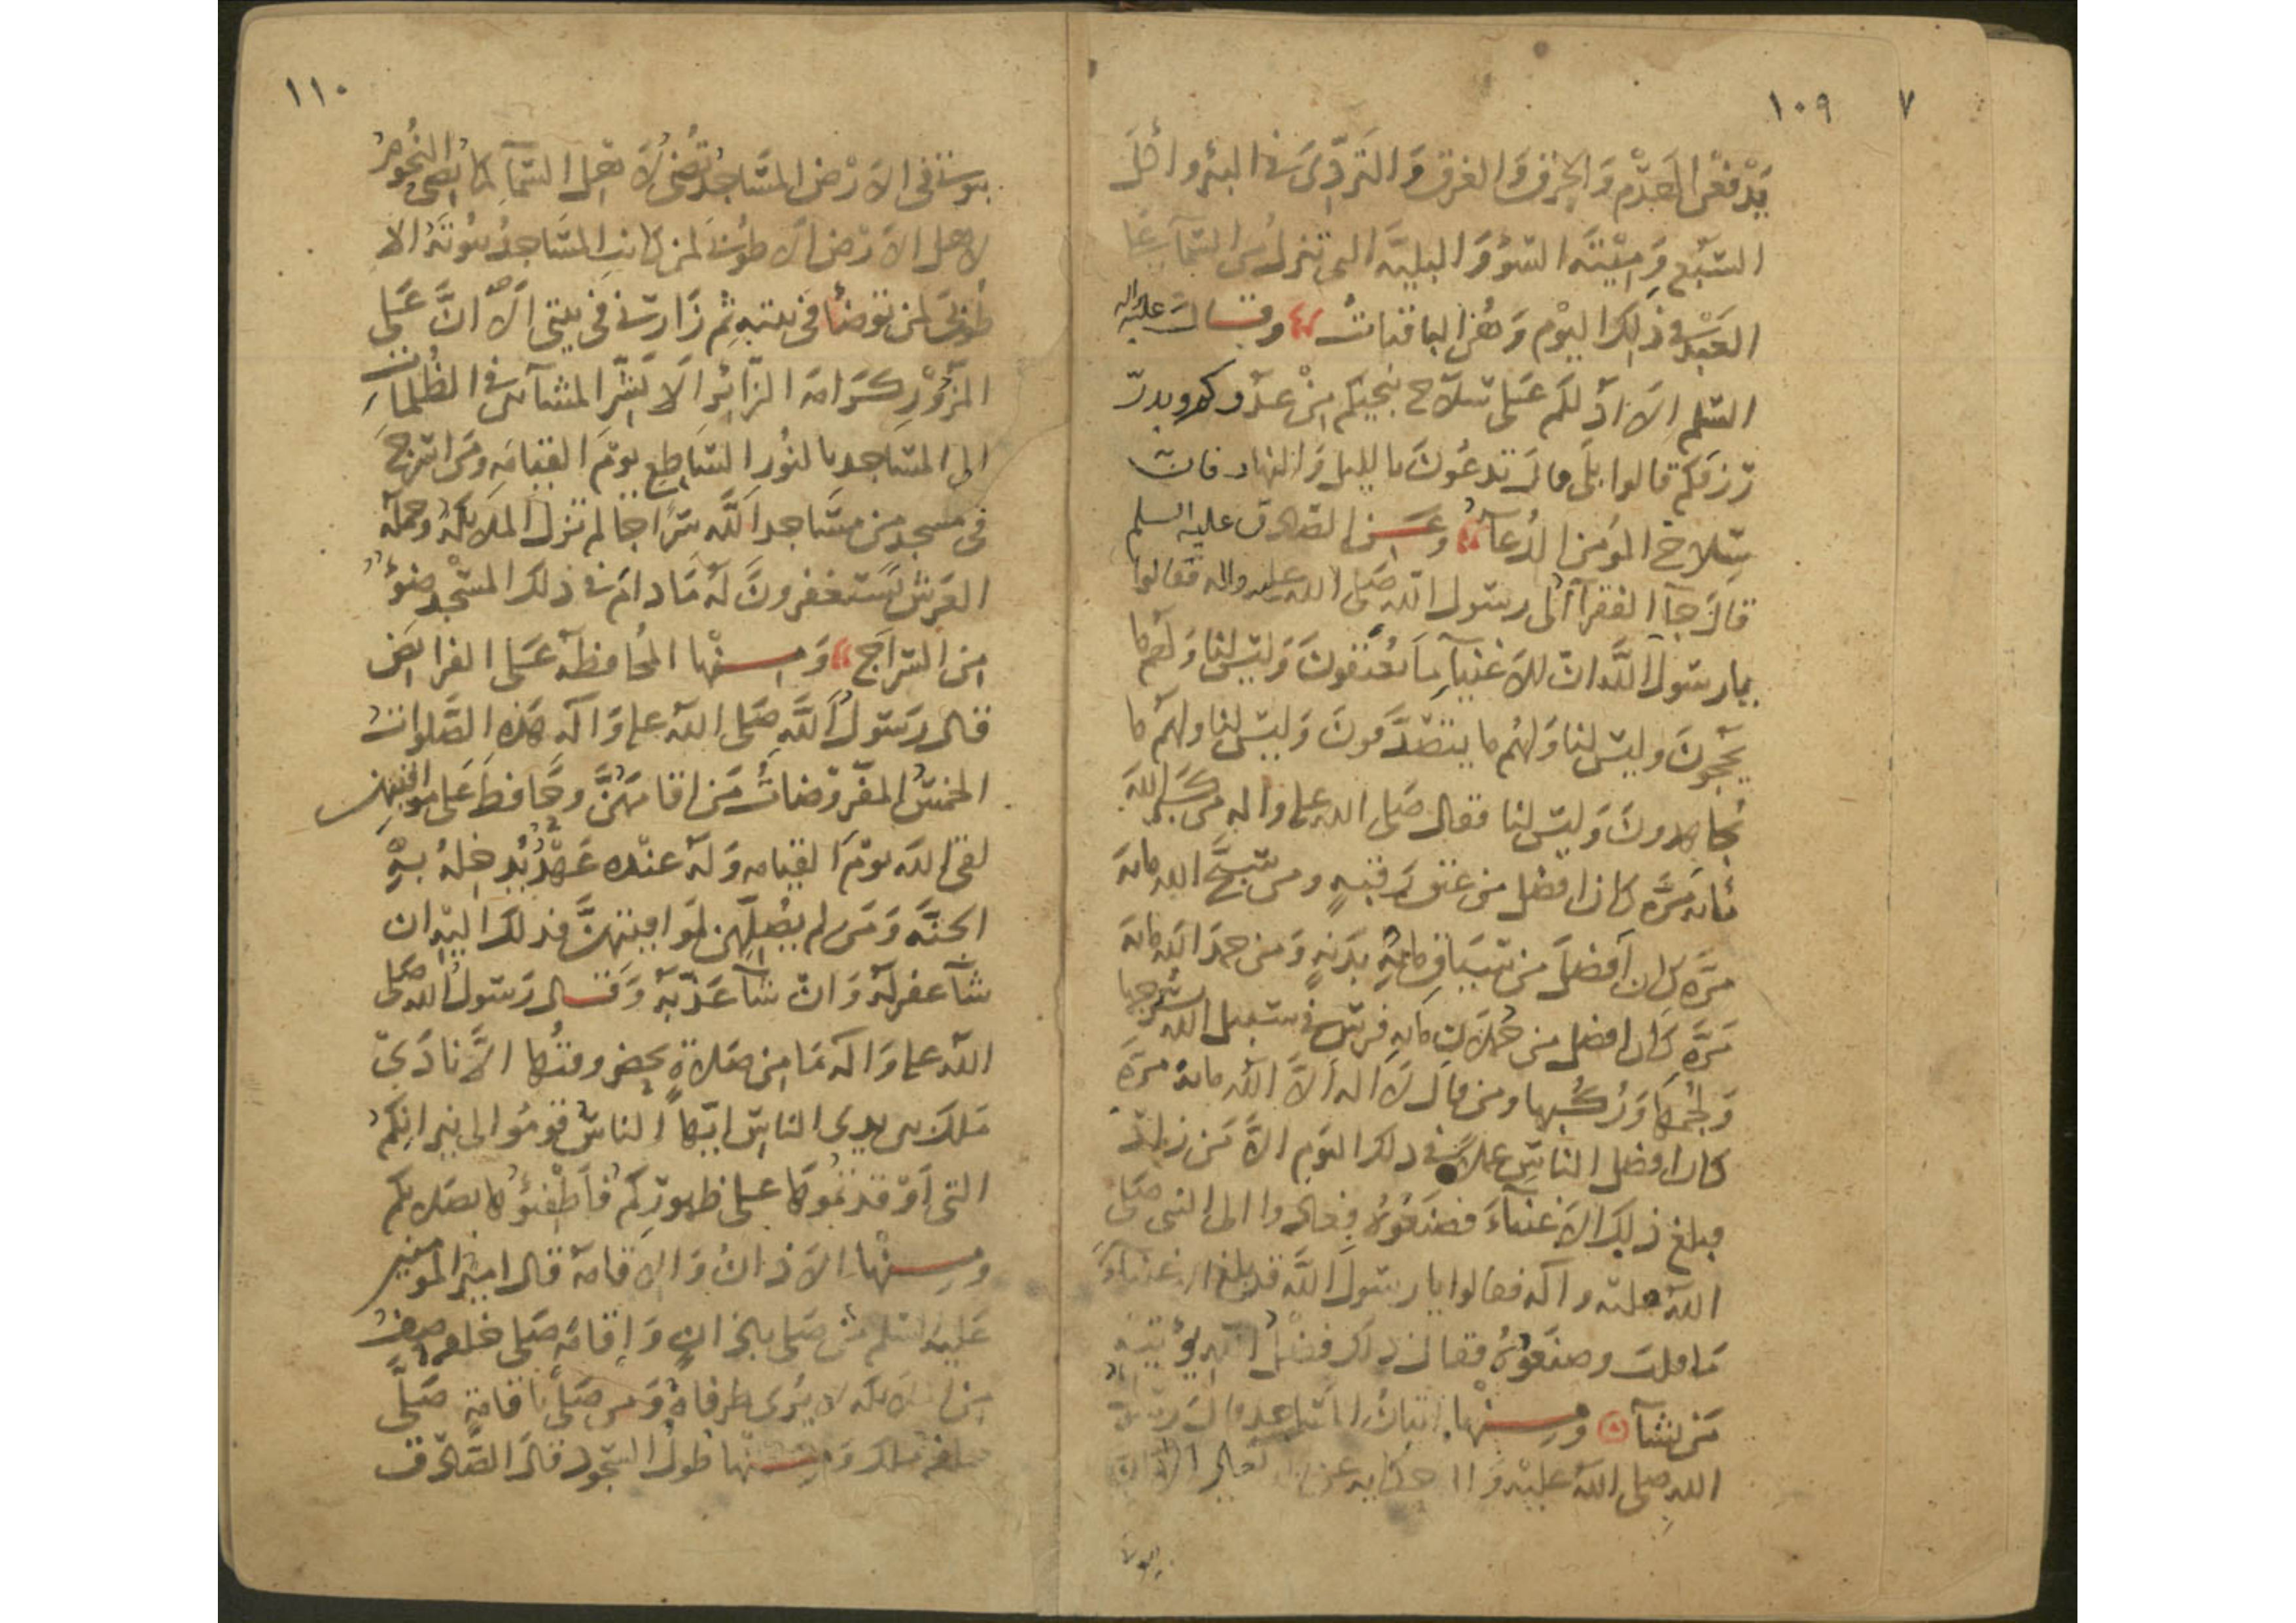 ١٠٩ ٧
يَدْفَعْنَ الهَدْم وَالحرق وَالغرق وَالتَردِّى فى البئر وأكل
السَّبُع وَمِيْتَة السّوْ وَالبلية التى تنزل من السّمآ على
العَبْد فى ذلِك اليوْم وَهُنَّ الباقياتُ وقال عليه
السّلم اَلاَ ادلكم عَلى سَلَاح ينجيكم مِنْ عدوكم ويدرّ
رزقكم قالوا بلَى قال تدعُونَ بالليل وَالنهار فان
سِلاح المؤمن الدُعآ وعَن الصّادق عليه السلم
قالَ جآ الفقرآ الى رسول الله صَلى الله عليه واله فقالوا
يا رسول اللَّه انّ للاَغنيآ مَا يُعتقونَ وَليسَ لنا وَلهم ما
يَحجّونَ وليسَ لنا وَلهُم ما يتصَدَّقونَ وَليسَ لنا ولهم ما
يُجاهِدونَ وَليسَ لنا فقال صَلى الله على واله من كبَّر الله
مَائه مرَّه كان افضل من عتق رقبهٍ ومن سَبَّحَ الله مائه
مرَّه كان اَفضلَ من سيَاق مائهِ بَدَنهٍ وَمن حمدَ الله مائه
مَرَّه كان افضل من حُملان مائهِ فرسٍ فى سَبيل الله بسُرجها
وَلجُمهَا وَرُكُبها ومن قال لاَ اله اَلاَّ الله مائهُ مرَّهِ
كان افضل الناسِ عملاً فى ذلك اليَوم الاَّ مَن زاد
فبلغ ذلِك الاَغنيآءَ فصنَعُوُه فجاؤا الى النبى صَلى
اللهُ عليه واله فقالوا يا رسُولَ اللَّه قد بلغ الاغنيآءَ
مَا قلتَ وصنَعُوهُ فقال ذلكَ فضْلُ الله يُؤتيهِ
مَن يشآ ومِنها اتيانُ المسَاجد قال رسول
الله صلى الله عليْه وَاله حكايه عن الله تعالى الاَ ان
١١٠
بيوتى فى الاَرْض المسَاجدُ تُضئُ لاَهْل السّمآ كما تضئ النُجُومُ
لاهل الاَرْض اَلا طُوبى لمن كانت المسَاجدُ بيُوتَهُ الا
طُوبَى لمن توضأ فى بيته ثم زَارنى فى بيتى اَلاَ انَّ عَلى
المَزُوْر كَرَامَة الزَّائرِ اَلاَ بَشِّر المشآئين فى الظُلمَاتِ
الى المسَاجد بالنُور السَّاطع يَوْمَ القيَامَه وَمَن اسْرج
فى مسجدٍ من مسَاجد اللَّه سِرَاجا لم تزل المَلايكَهُ وَحملَة
العَرش يَستغفرونَ لَهُ مَا دامَ فى ذلك المسْجد ضوْءٌ
مِن السّراج وَمِنْها المُحافظَه عَلى الفرايض
قال رَسَولُ اَللَّه صَلى الله على وَاله هَذه الصَّلوات
الخمسُ المفْرَوضاتُ مَن اقامَهُنَّ وحَافظَ عَلى مواقيتهن
لقى الله يَوْمَ القيامه وَلهُ عنده عَهْدٌ يُدخِلهُ بهِ
الجنَّهَ وَمَن لم يُصِلّهن لمَواقيتهنَّ فذلكَ اليْه ان
شآ غفر لَهُ وَانْ شآ عَذّبَهُ وَقال رَسولُ الله صَلى
الله على وَاله مَا مِن صَلاةٍ يحضر وقتُها الاَّ نادَى
مَلَكٌ بين يدى الناسِ ايّها الناسُ قوموُا الى نيرانِكمُ
التى اَوْقدتمُوهَا عَلى ظهوركُم فَاَطْفئوُها بصَلاتِكم
ومِنْها الاَذانُ وَالاقامَه قال اميرُ المومنين
عَليْه السّلم مَن صَلى باذانٍ وَاِقامَهٍ صَلى خلفه صَفٌ
مِن الملايكه لا يُرى طرفاهُ وَمن صَلى باقامَةٍ صَلى
خلفه مَلك وَمِنها طولُ السّجود قالَ الصّادق